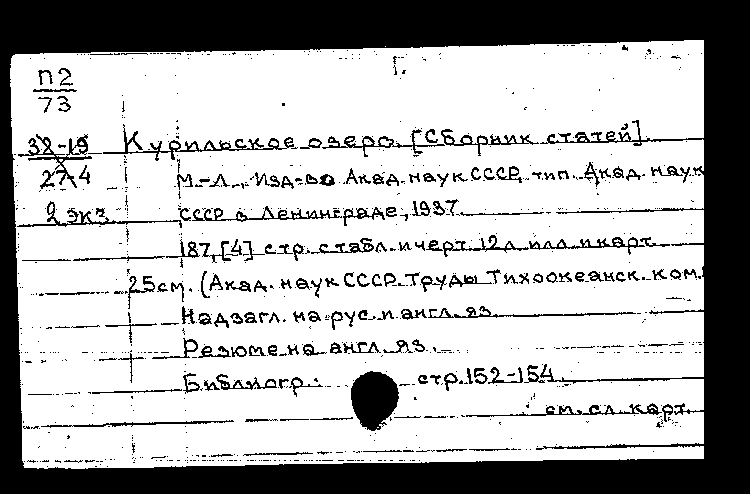 Г.
П2
73
32-19
27-4
2 экз.
Курильское озеро. [Сборник статей].
М.-Л., Изд-во Акад. наук СССР, тип. Акад. наук
СССР в Ленинграде, 1937.
187, [4] стр. с табл. и черт. 12 л. илл. и карт.
25см. (Акад. наук СССР. Труды Тихоокеанск. ком.
Надзагл. на рус. и англ. яз.
Резюме на англ. яз.
Библиогр.: стр. 152-154.
см. сл. карт.